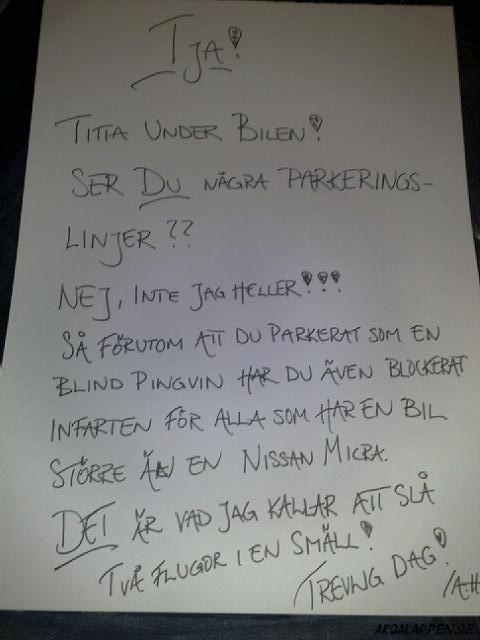 TJA!
TITTA UNDER BILEN!
SER DU NÅGRA PARKERINGS-
LINJER ??
NEJ, INTE JAG HELLER!!!
SÅ FÖRUTOM ATT DU PARKERAT SOM EN
BLIND PINGVIN HAR DU ÄVEN BLOCKERAT
INFARTEN FÖR ALLA SOM HAR EN BIL
STÖRRE ÄN EN NISSAN MICRA.
DET ÄR VAD JAG KALLAR ATT SLÅ
TVÅ FLUGOR I EN SMÄLL!
TREVLIG DAG!
/AH
ARGALAPPEN.SE